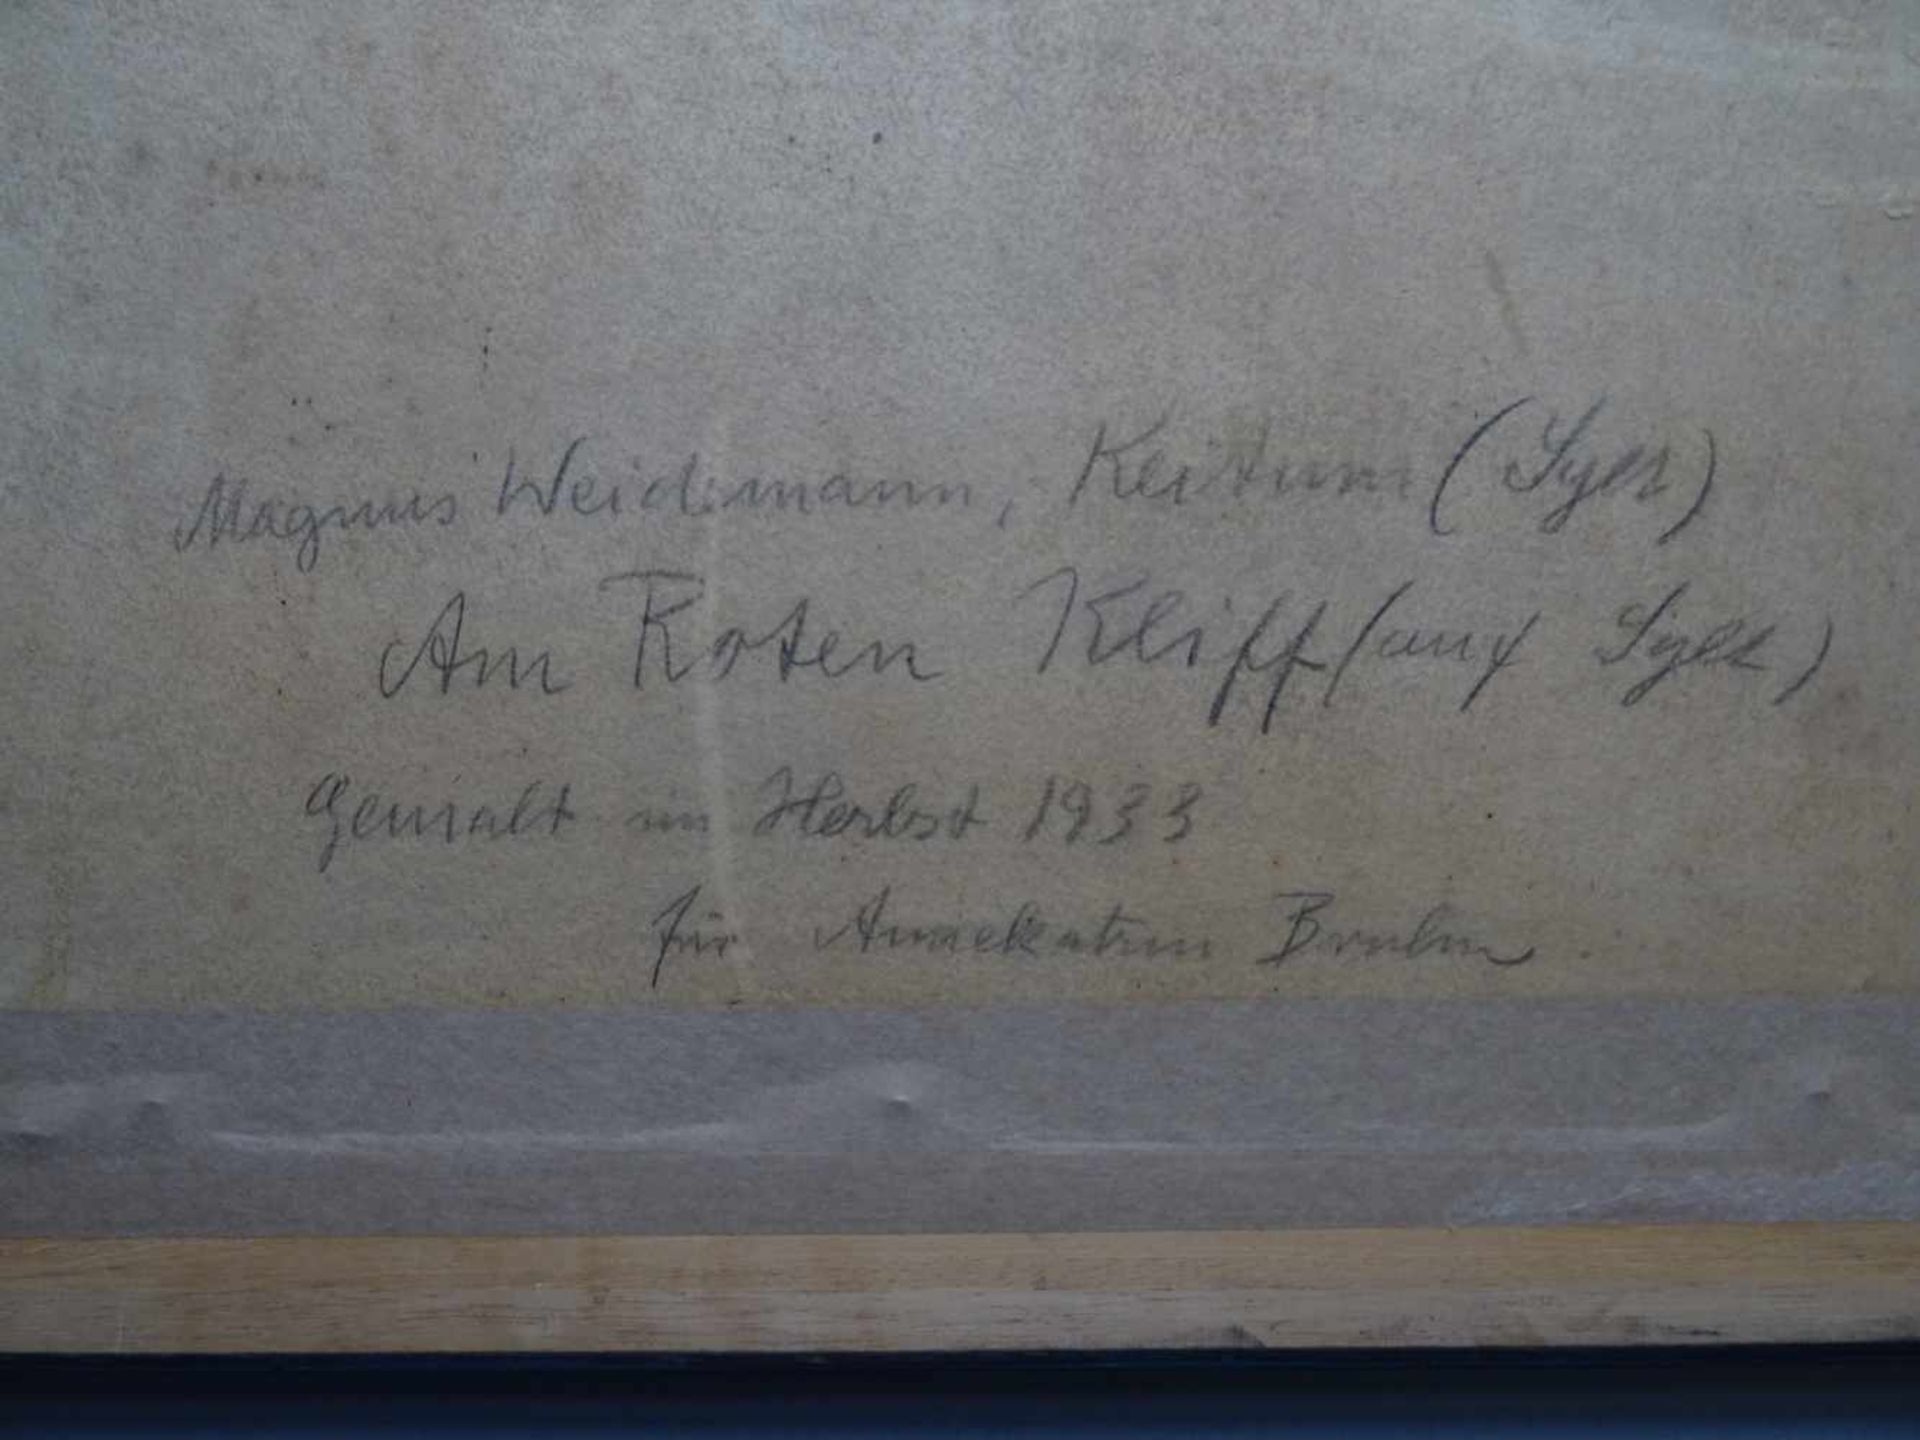 Magnus Weidemann, Keitum (Sylt)
Am Roten Kliff (auf Sylt)
Gemalt im Herbst 1933
für Annekatrin Bruhn.